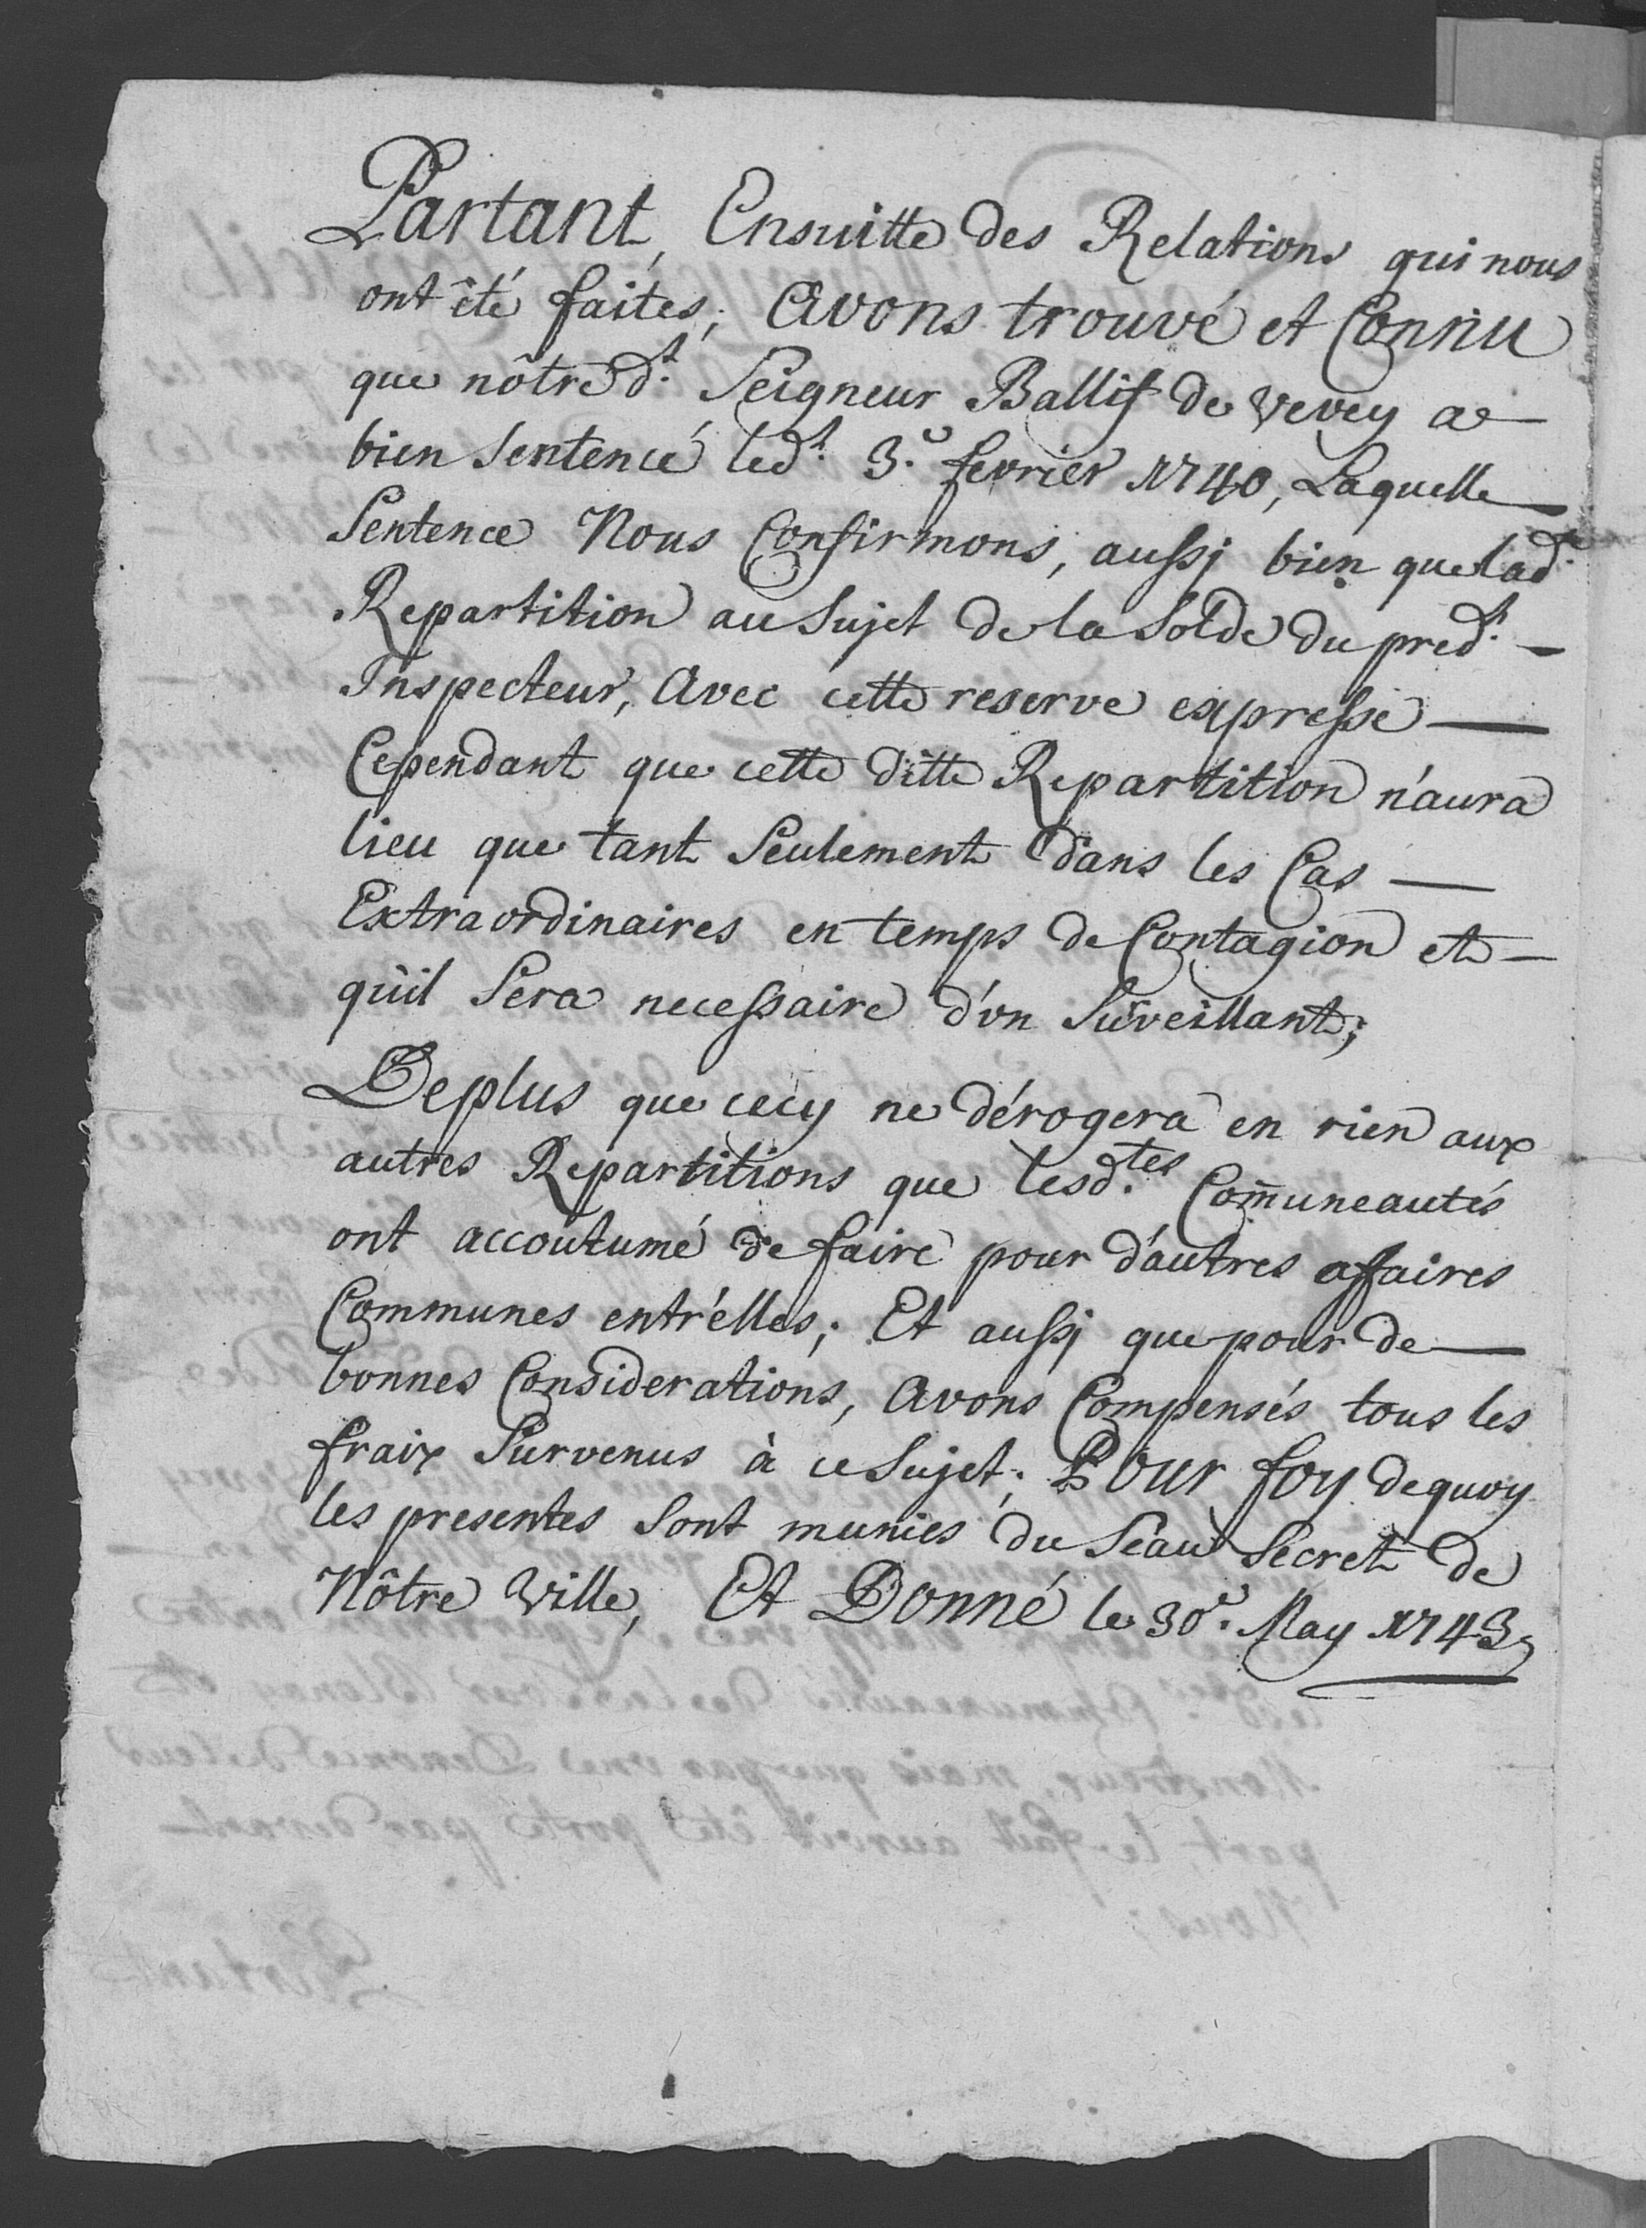 Partant, Ensuitte des Relations qui nous
ont êté faites; Avons trouvé et Connu
que nôtred.t Seigneur Ballif de Vevey a
bien Sentencé led.t 3.e fevrier 1740, Laquelle
Sentence Nous Confirmons, aussj bien que lad.e
Repartition au Sujet de la Solde du pred.t
Inspecteur, Avec cette reserve expresse
Cependant que cette ditte Repartition n'aura
lieu que tant Seulement dans les Cas
Extraordinaires en temps de Contagion et
qu'il Sera necessaire d'vn Surveillant;
De plus que cecy ne dérogera en rien aux
autres Repartitions que lesd.tes Com̄uneautés
ont accoutumé de faire pour d'autres affaires
Communes entr'elles; Et aussj que pour de
bonnes Considerations, Avons Compensés tous les
fraix Survenus à ce Sujet; Pour foy de quoy
les presentes Sont munies du Seau Secret de
Nôtre Ville, Et Donné le 30.e May 1743